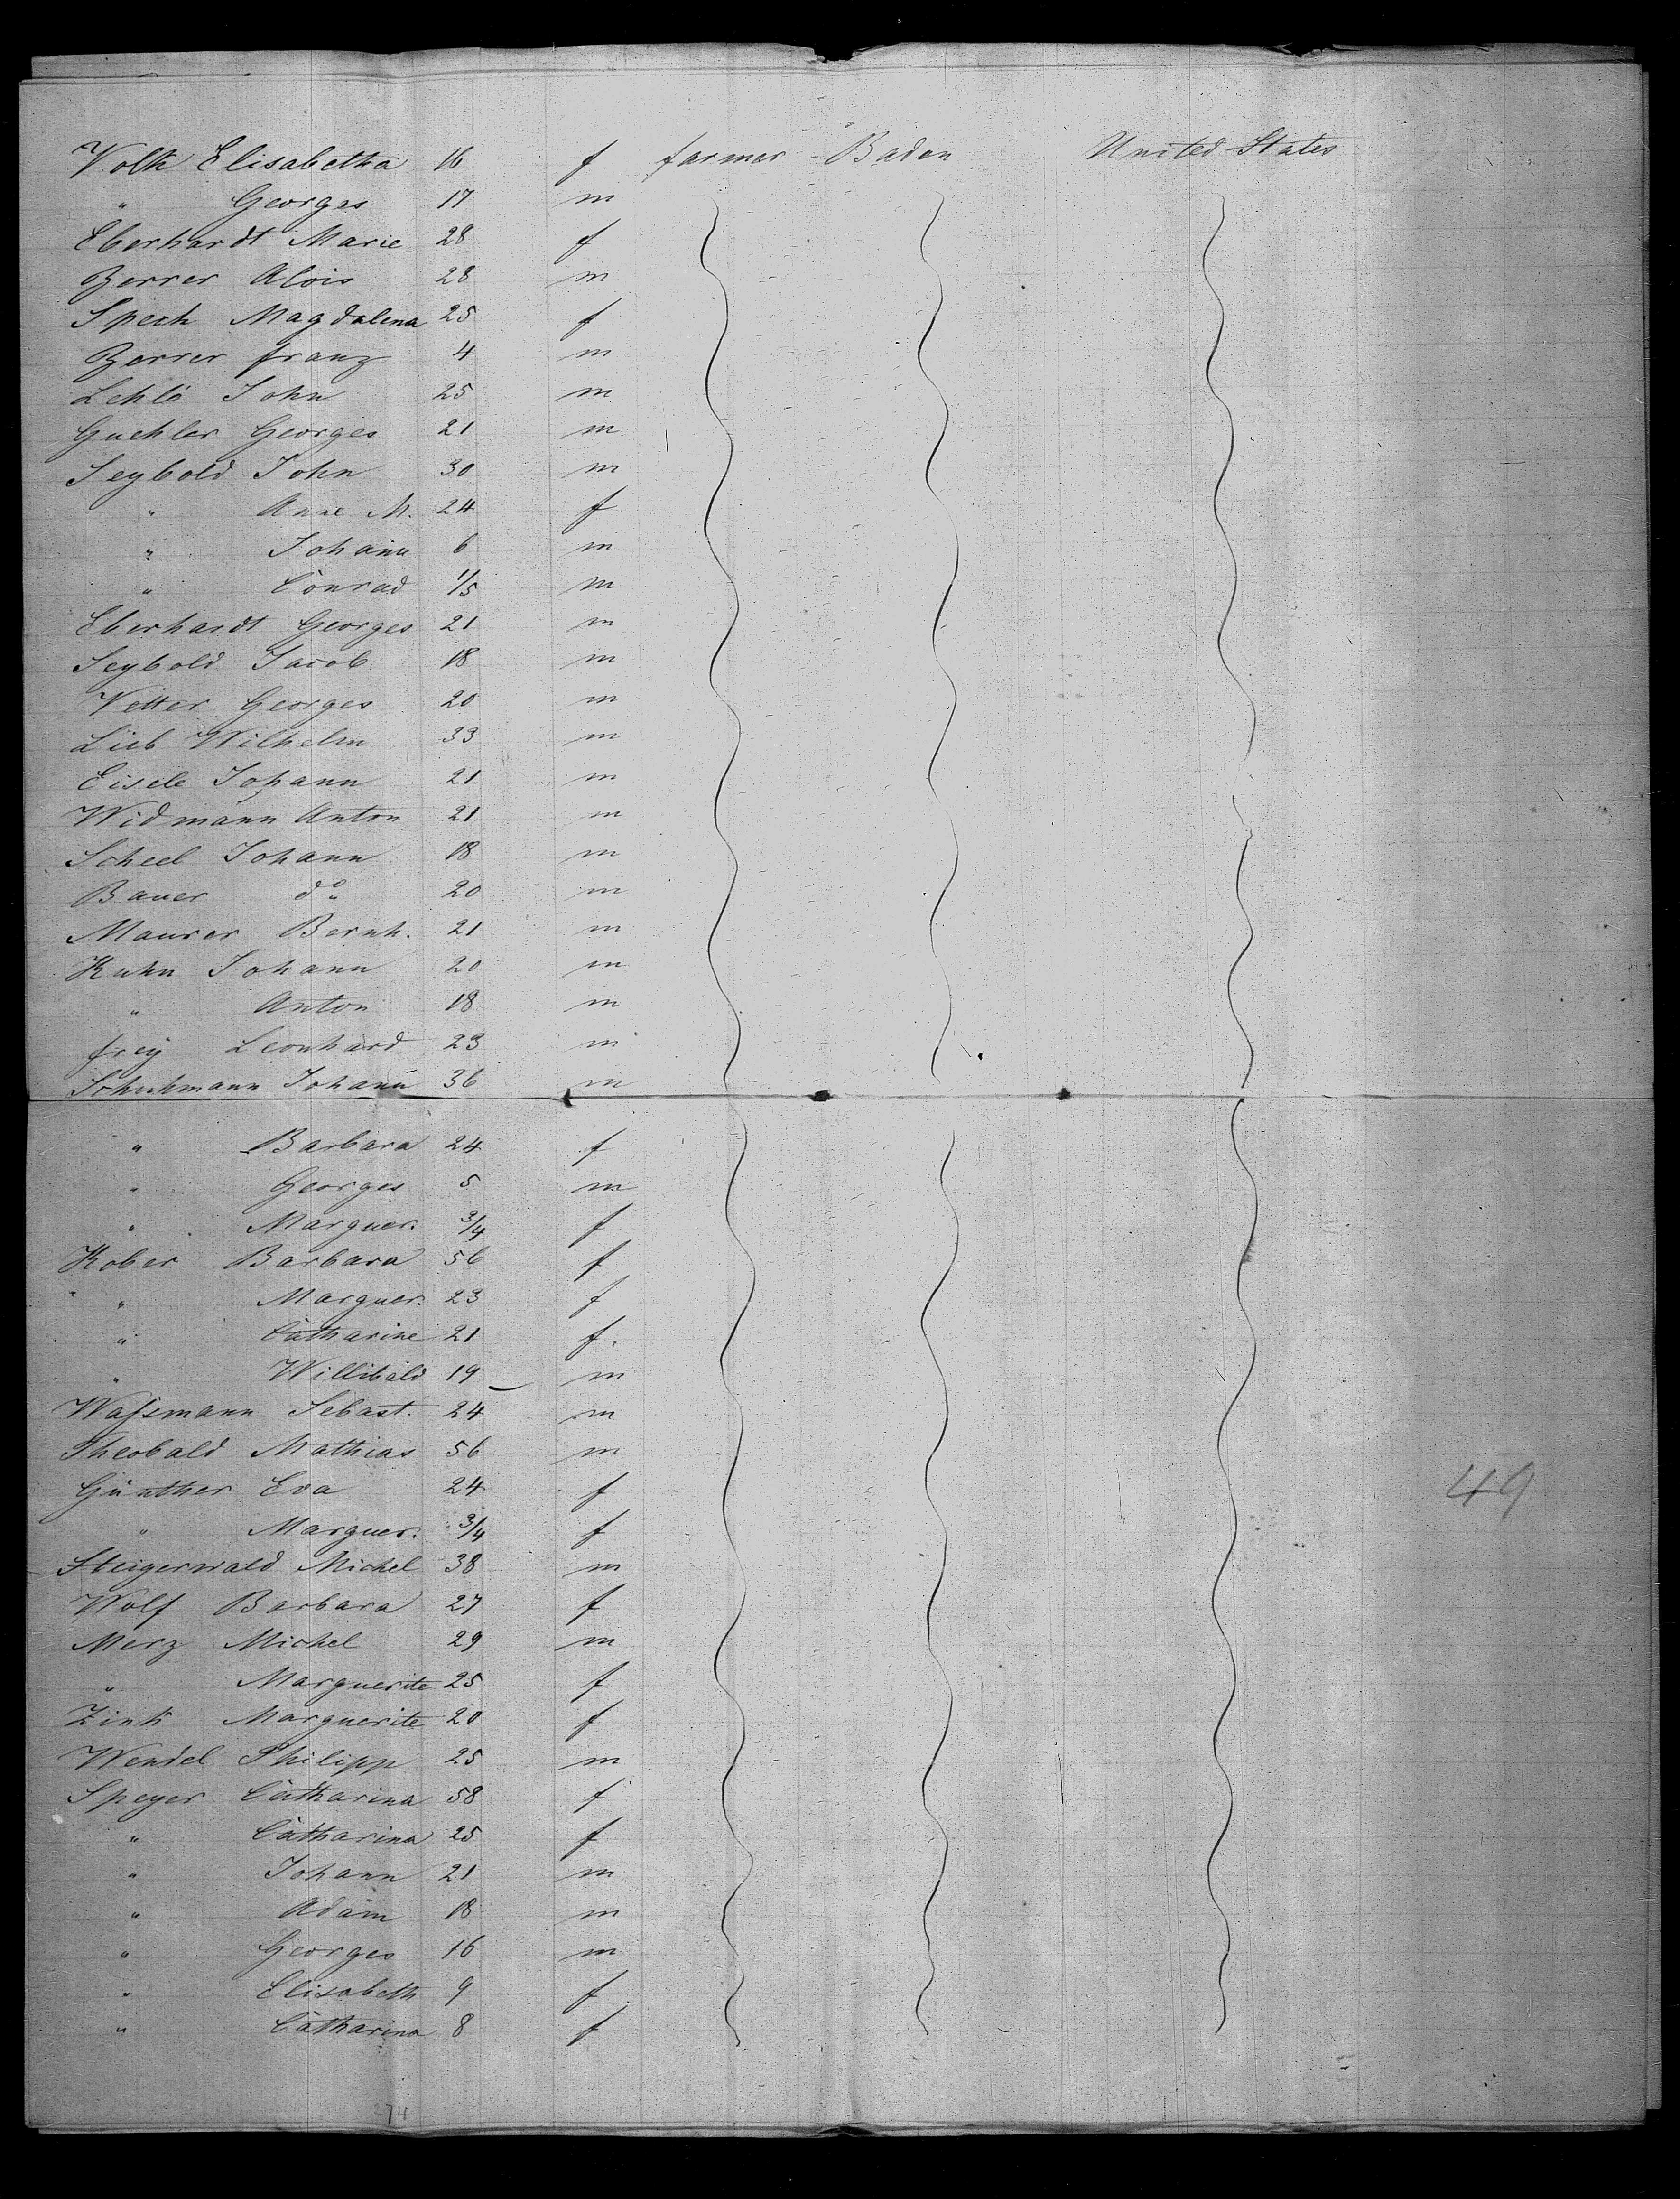 Volk Elisabetha 16 f farmer Baden United States
" Georges 17 m
Eberhardt Marie 28 f
Berrer Alois 28 m
Spech Magdalena 25 f
Berrer franz 4 m
Lehlé John 25 m
Guehler Georges 21 m
Seybold John 30 m
" Anne M. 24 f
" Johann 6 m
" Conrad 1/5 m
Eberhardt Georges 21 m
Seybold Jacob 18 m
Vetter Georges 20 m
Lieb Wilhelm 33 m
Eisele Johann 21 m
Widmann Anton 21 m
Scheel Johann 18 m
Bauer do 20 m
Maurer Bernh. 21 m
Kuhn Johann 20 m
" Anton 18 m
frey Leonhard 23 m
Schuhmann Johann 36 m
" Barbara 24 f
" Georges 5 m
" Marguer. 3/4 f
Kober Barbara 56 f
" Marguer. 23 f
" Catharine 21 f.
" Willibald 19 m
Wassmann Sebast. 24 m
Theobald Mathias 56 m
Günther Eva 24 f
" Marguer. 3/4 f
49
Steigerwald Michel 38 m
Wolf Barbara 27 f
Merz Michel 29 m
" Marguerite 25 f
Zink Marguerite 20 f
Wendel Philipp 25 m
Speyer Catharina 58 f
" Catharina 25 f
" Johann 21 m
" Adam 18 m
" Georges 16 m
" Elisabeth 9 f
" Catharina 8 f
74